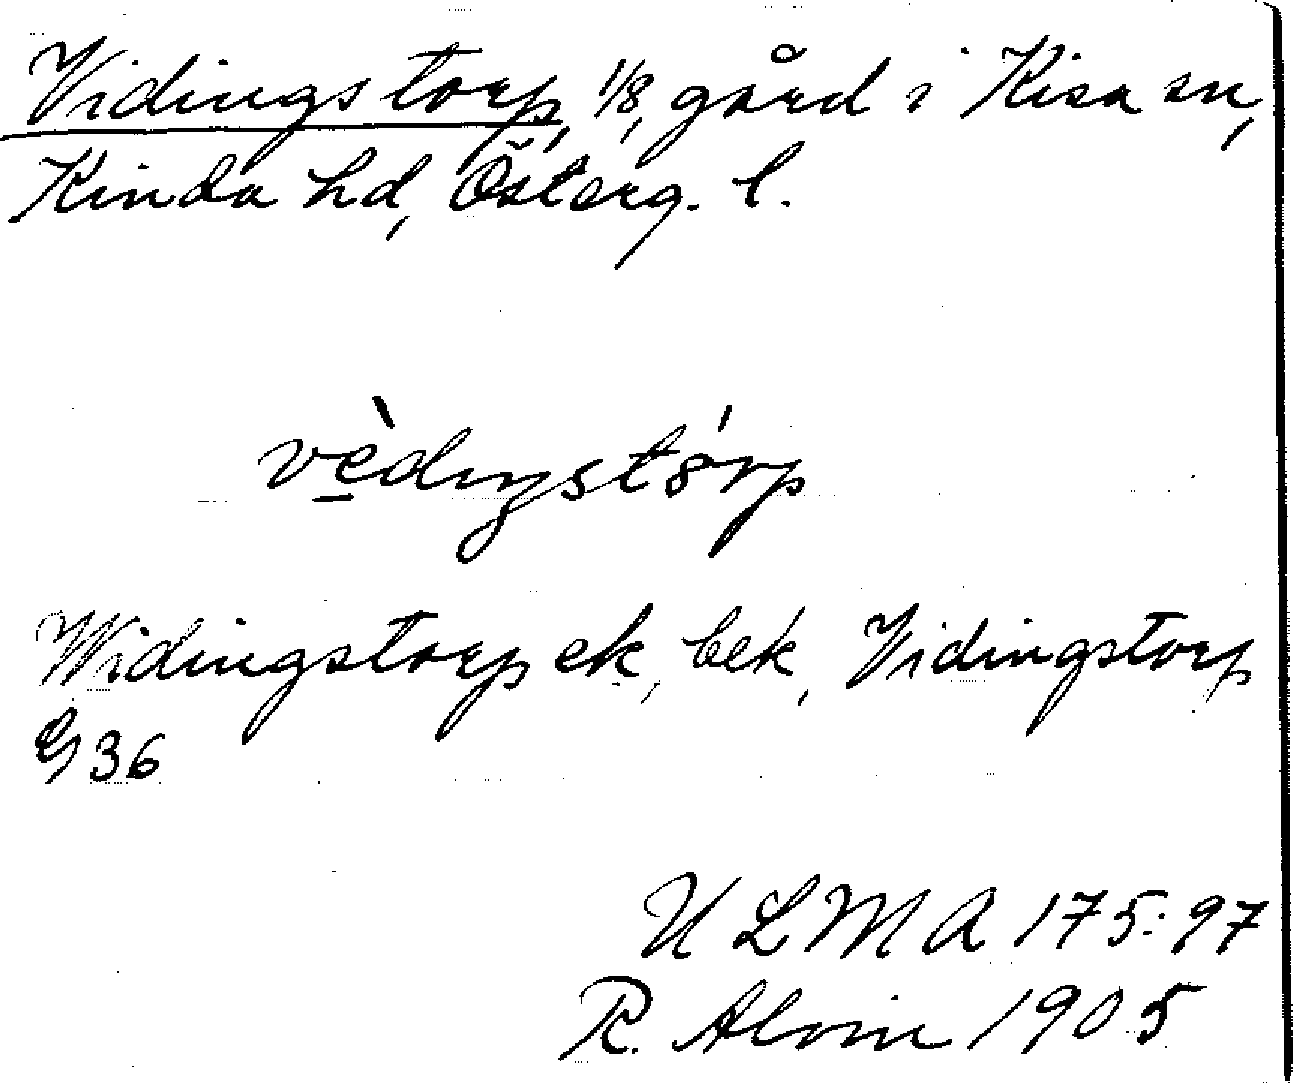 Vidingstorp, 1/8, gård i Kisa sn,
Kinda hd, Österg. l.
vèdıŋstórp
Widingstorp ek, bek, Vidingstorp
G 36
ULMA 175:97
R. Alvin 1905